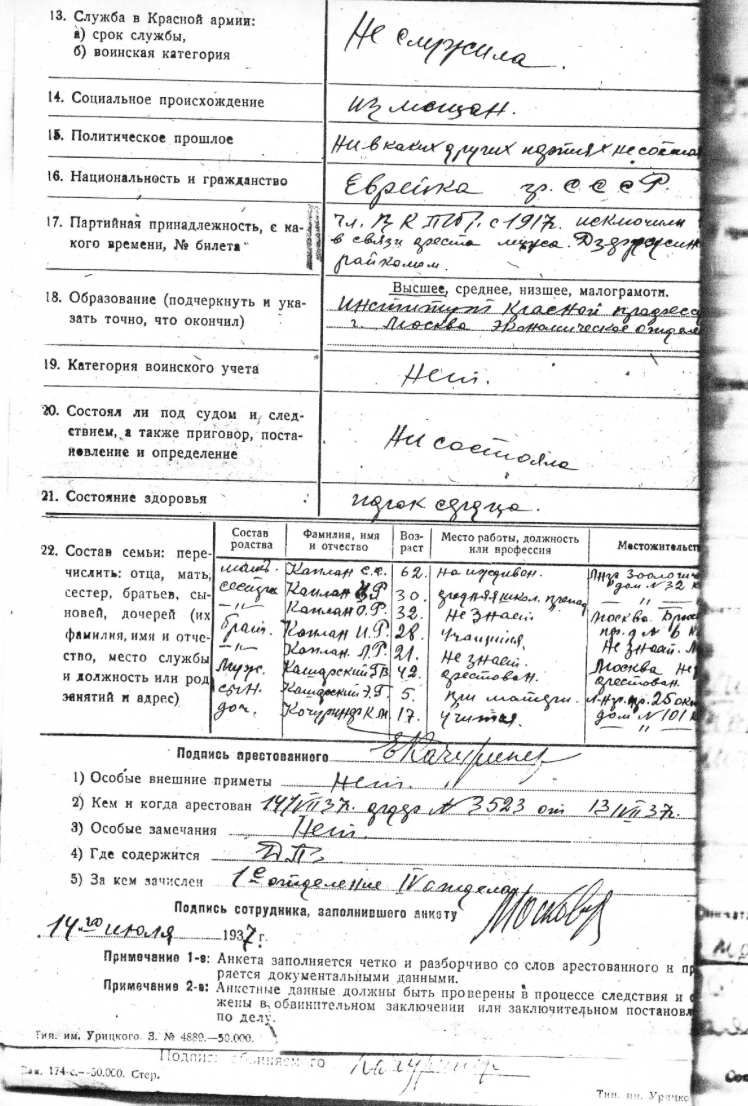 13. Служба в Красной армии:
а) срок службы,
б) воинская категория
Не служила.
14. Социальное происхождение
из мещан.
15. Политическое прошлое
Ни в каких других партиях не состояла
16. Национальность и гражданство
Еврейка гр. СССР.
17. Партийная принадлежность, с ка-
кого времени, № билета
чл. ВКП(б). с 1917г. исключили
в связи ареста мужа. Дзержинск
райкомом.
18. Образование (подчеркнуть и ука-
зать точно, что окончил)
Высшее, среднее, низшее, малограмотн.
Институт Красной професс
г. Москва экономическое отделе
19. Категория воинского учета
Нет.
20. Состоял ли под судом и след-
ствием, а также приговор, поста-
новление и определение
Ни состояла
21. Состояние здоровья
порок сердца.
22. Состав семьи: пере-
числить: отца, мать,
сестер, братьев, сы-
новей, дочерей (их
фамилия, имя и отче-
ство, место службы
и должность или род
занятий и адрес)
Состав родства Фамилия, имя и отчество Воз-раст Место работы, должность или профессия Местожительст
мать. Каплан 62. на иждивен. Лнгр Зоологиче дом № 32 к
сестра Каплан 30. средняя школ. препод — " —
— " — Каплан О.Г. 32. Не знает Москва
Брат. Каплан И.Г. 28. Учащийся. Не знает.
— " — Каплан Л.Г. 21. Не знает. Москва Не
Муж. Кашарский 42. арестован. арестован.
сын. Кашарский Э.Г. 5. при матери. Л-нгр. пр. 25 окт
доч. Кочуринер К.М. 17. Учится. дом № 101 к
Подпись арестованного ЕКачуринер
1) Особые внешние приметы Нет.
2) Кем и когда арестован 14/VII 37. ордер № 3523 от 13/VII 37г.
3) Особые замечания Нет.
4) Где содержится ДПЗ
5) За кем зачислен 1е отделение IV отдела
Подпись сотрудника, заполнившего анкету
14го июля 1937 г.
Примечание 1-е: Анкета заполняется четко и разборчиво со слов арестованного и пр
ряется документальными данными.
Примечание 2-е: Анкетные данные должны быть проверены в процессе следствия и
жены в обвинительном заключении или заключительном постановл
по делу.
Тип. им. Урицкого З. № 4889.—50.000.
Подпись обвиняемого Качуринер
Зак. 174-с.—50.000. Стер.
Тип. им. Урицк